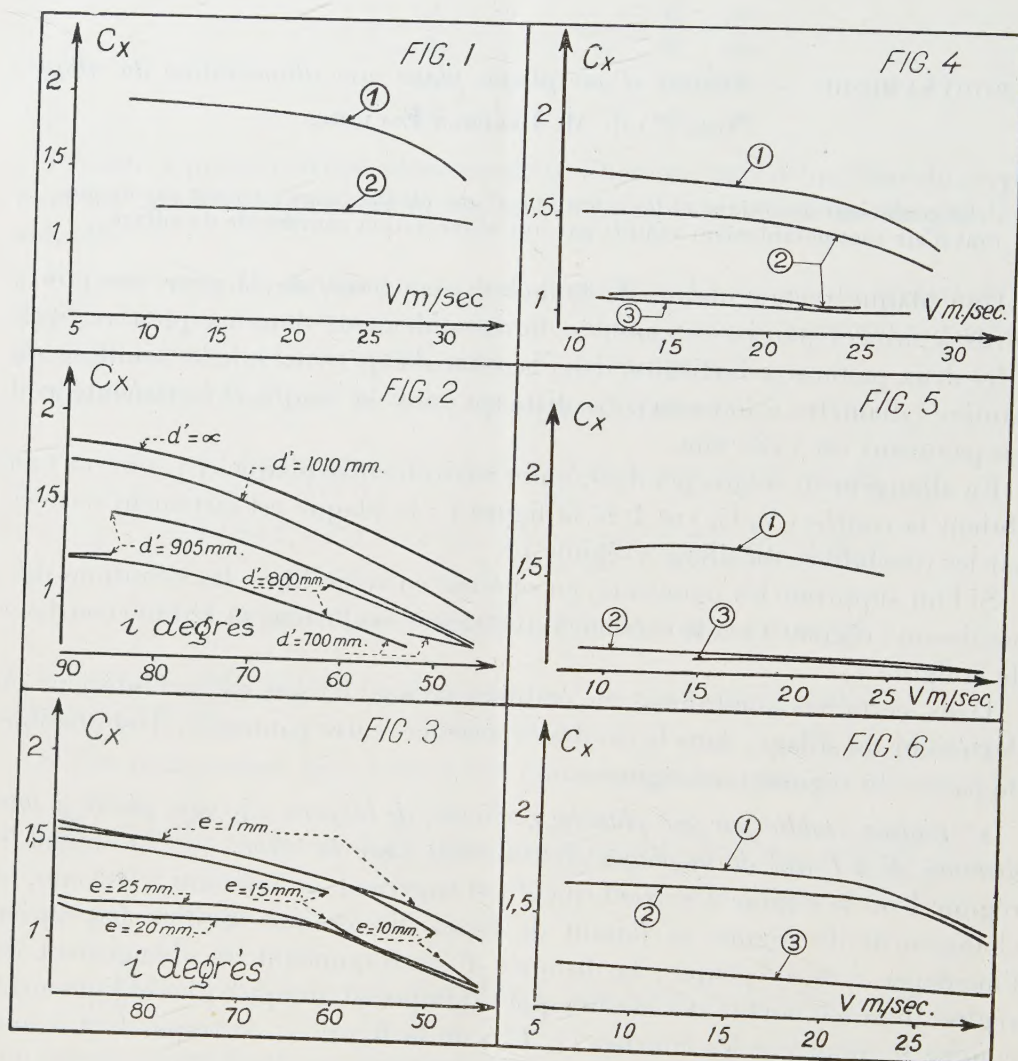 Cx
FIG. 1
2
1
1,5
2
1
V m/sec
5 10 15 20 25 30
Cx
FIG. 2
2
d'=∝
d'=1010 mm.
1,5
d'=905 mm.
d'=800 mm.
1
i degrés
d'=700 mm.
90 80 70 60 50
Cx
FIG. 3
2
1,5
e=1 mm.
e=25 mm. e=15 mm.
1
e=20 mm. e=10 mm.
i degrés
80 70 60 50
Cx
FIG. 4
2
1
1,5
2
1
3
V m/sec.
10 15 20 25 30
Cx
FIG. 5
2
1
1,5
2
10 15 20 25 V m/sec.
Cx
FIG. 6
2
1
1,5
2
3
V m/sec.
5 10 15 20 25